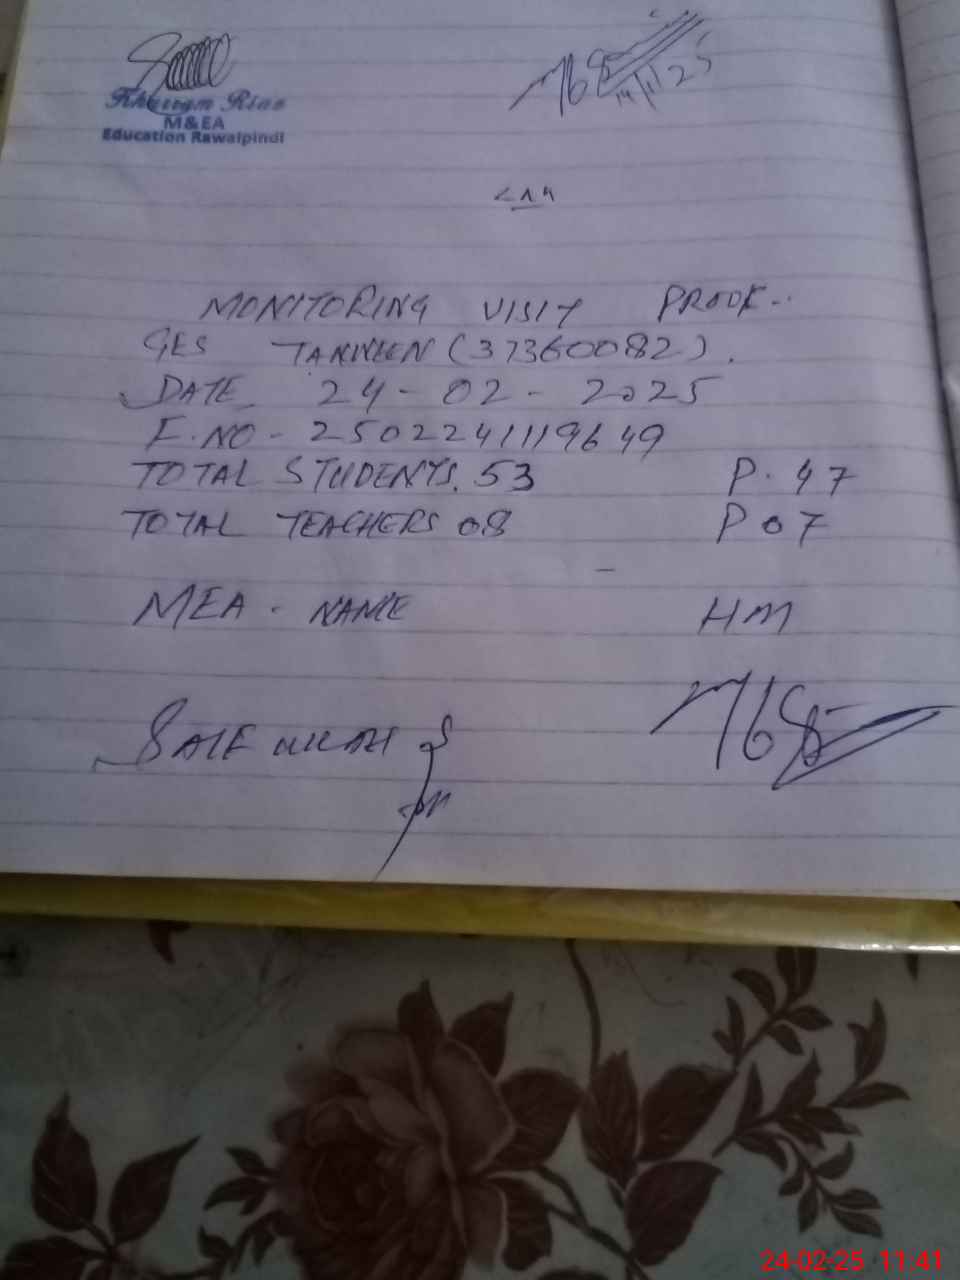 Khurram Riaz
M&EA
Education Rawalpindi
14/1/25
MONITORING VISIT PROOF..
GES TARKEEN (37360082).
DATE 24-02-2025
F.NO - 2502241119649
TOTAL STUDENTS. 53 P. 47
TOTAL TEACHERS 08 P 07
MEA - NAME HM
24-02-25 11:41